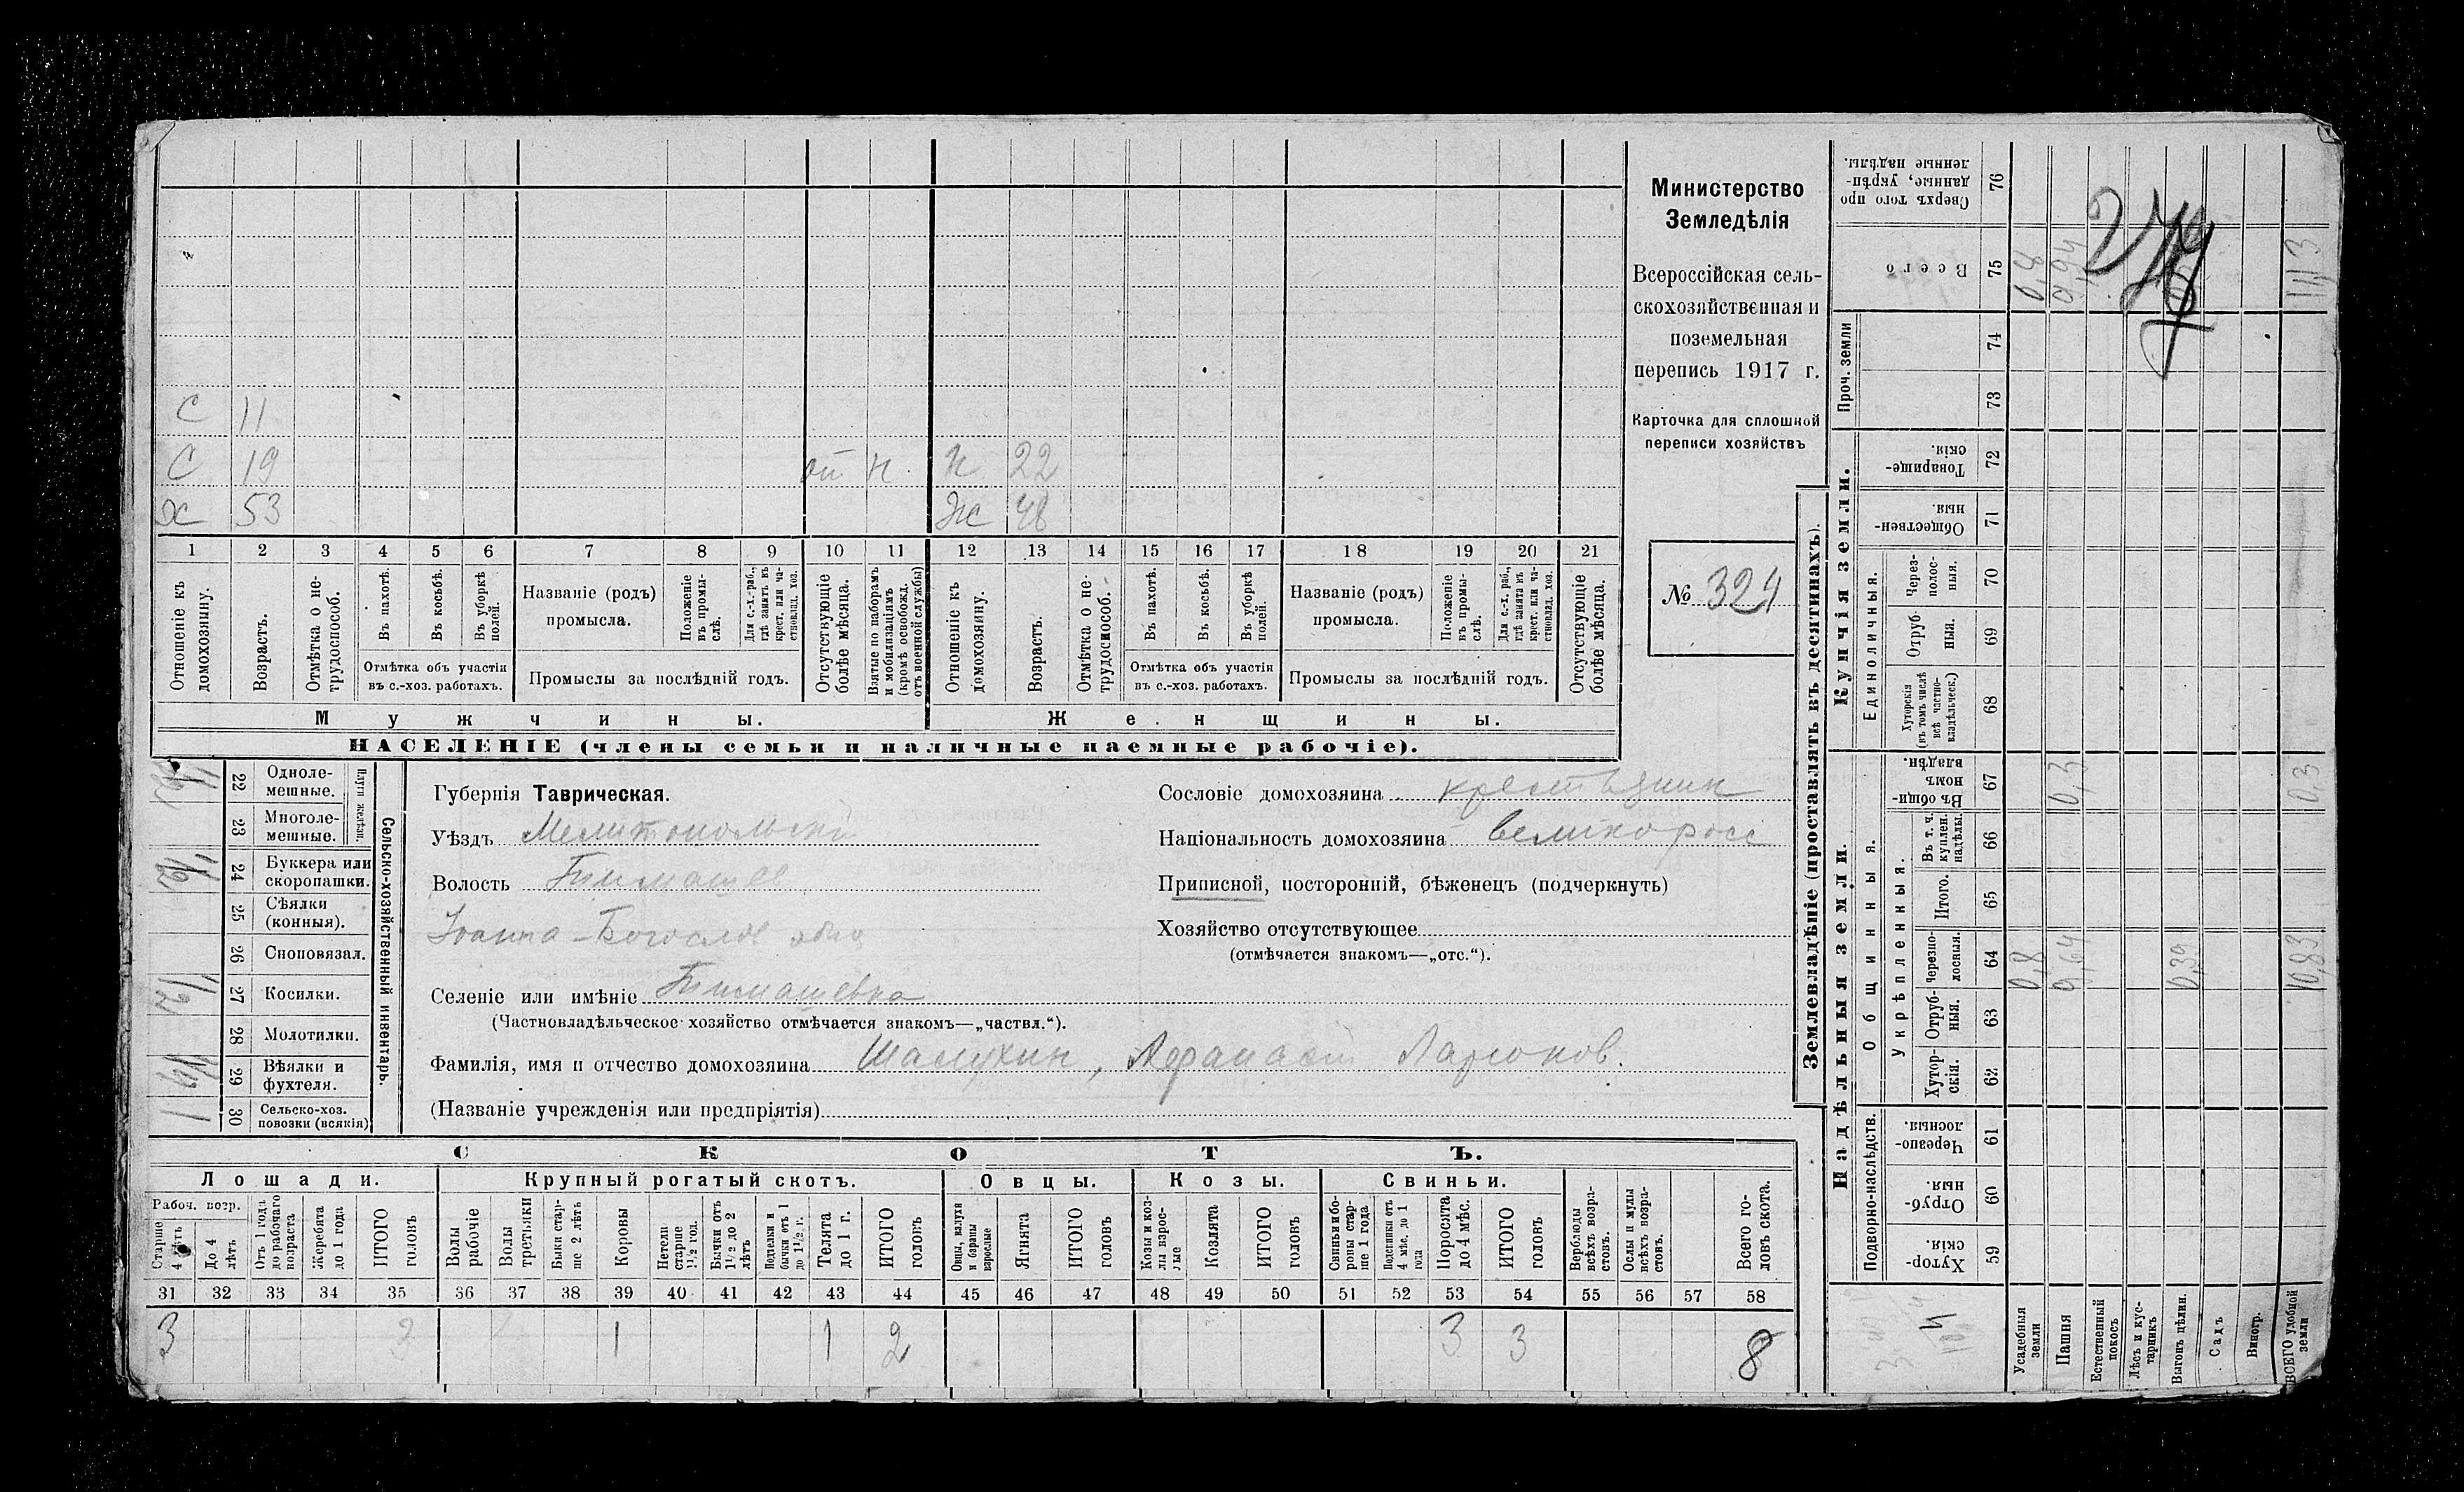 С 11
С 19 оп н. н 22
Х 53 Ж 48
1 2 3 4 5 6 7 8 9 10 11 12 13 14 15 16 17 18 19 20 21
Отношеніе къ домохозяину.
Возрастъ.
Отмѣтка о нетрудоспособ.
Въ пахотѣ.
Въ косьбѣ.
Въ уборкѣ полей.
Отмѣтка объ участіи въ с.-хоз. работахъ.
Названіе (родъ) промысла.
Положеніе въ промыслѣ.
Для с.-х. раб., гдѣ занятъ въ крест. или частновлад. хоз.
Промыслы за послѣдній годъ.
Отсутствующіе болѣе мѣсяца.
Взятые по наборамъ и мобилизаціямъ (кромѣ освобожд. отъ военной службы)
Отношеніе къ домохозяину.
Возрастъ.
Отмѣтка о нетрудоспособ.
Въ пахотѣ.
Въ косьбѣ.
Въ уборкѣ полей.
Отмѣтка объ участіи въ с.-хоз. работахъ.
Названіе (родъ) промысла.
Положеніе въ промыслѣ.
Для с.-х. раб., гдѣ занята въ крест. или частновлад. хоз.
Промыслы за послѣдній годъ.
Отсутствующіе болѣе мѣсяца.
Мужчины. Женщины.
НАСЕЛЕНІЕ (члены семьи и наличные наемные рабочіе).
Министерство
Земледѣлія
Всероссійская сель-
скохозяйственная и
поземельная
перепись 1917 г.
Карточка для сплошной
переписи хозяйствъ
№ 324
Сельско-хозяйственный инвентарь.
Плуги желѣзн.
22 Одноле-
мешные.
23 Многоле-
мешные.
24 Буккера или
скоропашки.
25 Сѣялки
(конныя).
26 Сноповязал.
27 Косилки.
28 Молотилки.
29 Вѣялки и
фухтеля.
1 30 Сельско-хоз.
повозки (всякія)
Губернія Таврическая.
Уѣздъ Мелитопольскій
Волость Тимашев
Іоанна-Богослов
Селеніе или имѣніе Тимашевка
(Частновладѣльческое хозяйство отмѣчается знакомъ—„частвл.“).
Фамилія, имя и отчество домохозяина Шалухин, Афанасий Ларионов.
(Названіе учрежденія или предпріятія)
Сословіе домохозяина крестьянин
Національность домохозяина великоросс
Приписной, посторонній, бѣженецъ (подчеркнуть)
Хозяйство отсутствующее
(отмѣчается знакомъ—„отс.“).
СКОТЪ.
Лошади. Крупный рогатый скотъ. Овцы. Козы. Свиньи.
Рабоч. возр.
Старше 4 лѣтъ
До 4 лѣтъ
Отъ 1 года до рабочаго возраста
Жеребята до 1 года
ИТОГО головъ
Волы рабочіе
Волы третьяки
Быки старше 2 лѣтъ
Коровы
Нетели старше 1½ год.
Бычки отъ 1½ до 2 лѣтъ
Подтелки и бычки отъ 1 до 1½ г.
Телята до 1 г.
ИТОГО головъ
Овцы, валухи и бараны взрослые
Ягнята
ИТОГО головъ
Козы и козлы взрослые
Козлята
ИТОГО головъ
Свиньи и боровы старше 1 года
Подсвинки отъ 4 мѣс. до 1 года
Поросята до 4 мѣс.
ИТОГО головъ
Верблюды всѣхъ возрастовъ.
Ослы и мулы всѣхъ возрастовъ.
Всего головъ скота.
31 32 33 34 35 36 37 38 39 40 41 42 43 44 45 46 47 48 49 50 51 52 53 54 55 56 57 58
3 3 1 1 2 3 3 8
Землевладѣніе (проставлять въ десятинахъ).
Надѣльныя земли. Купчія земли. Проч. земли
Подворно-наслѣдств.
Общинныя.
Укрѣпленныя.
Единоличныя.
Сверхъ того проданные, укрѣпленные надѣлы. 76
Всего 75 0,8 9,94 11,13
74
73
Товарищескія. 72
Общественныя. 71
Черезполосныя. 70
Отрубныя. 69
Хуторскія (въ томъ числѣ всѣ частновладѣльческ.) 68
Въ общинномъ владѣн. 67 0,3 0,3
Въ т. ч. куплен. надѣлы. 66
Итого. 65
Черезполосныя. 64 0,8 9,64 0,39 10,83
Отрубныя. 63
Хуторскія. 62
Черезполосныя. 61
Отрубныя. 60
Хуторскія. 59
Усадебныя земли
Пашня
Естественный покосъ
Лѣсъ и кустарникъ
Выгонъ цѣлин.
Садъ
Виногр.
ВСЕГО удобной земли